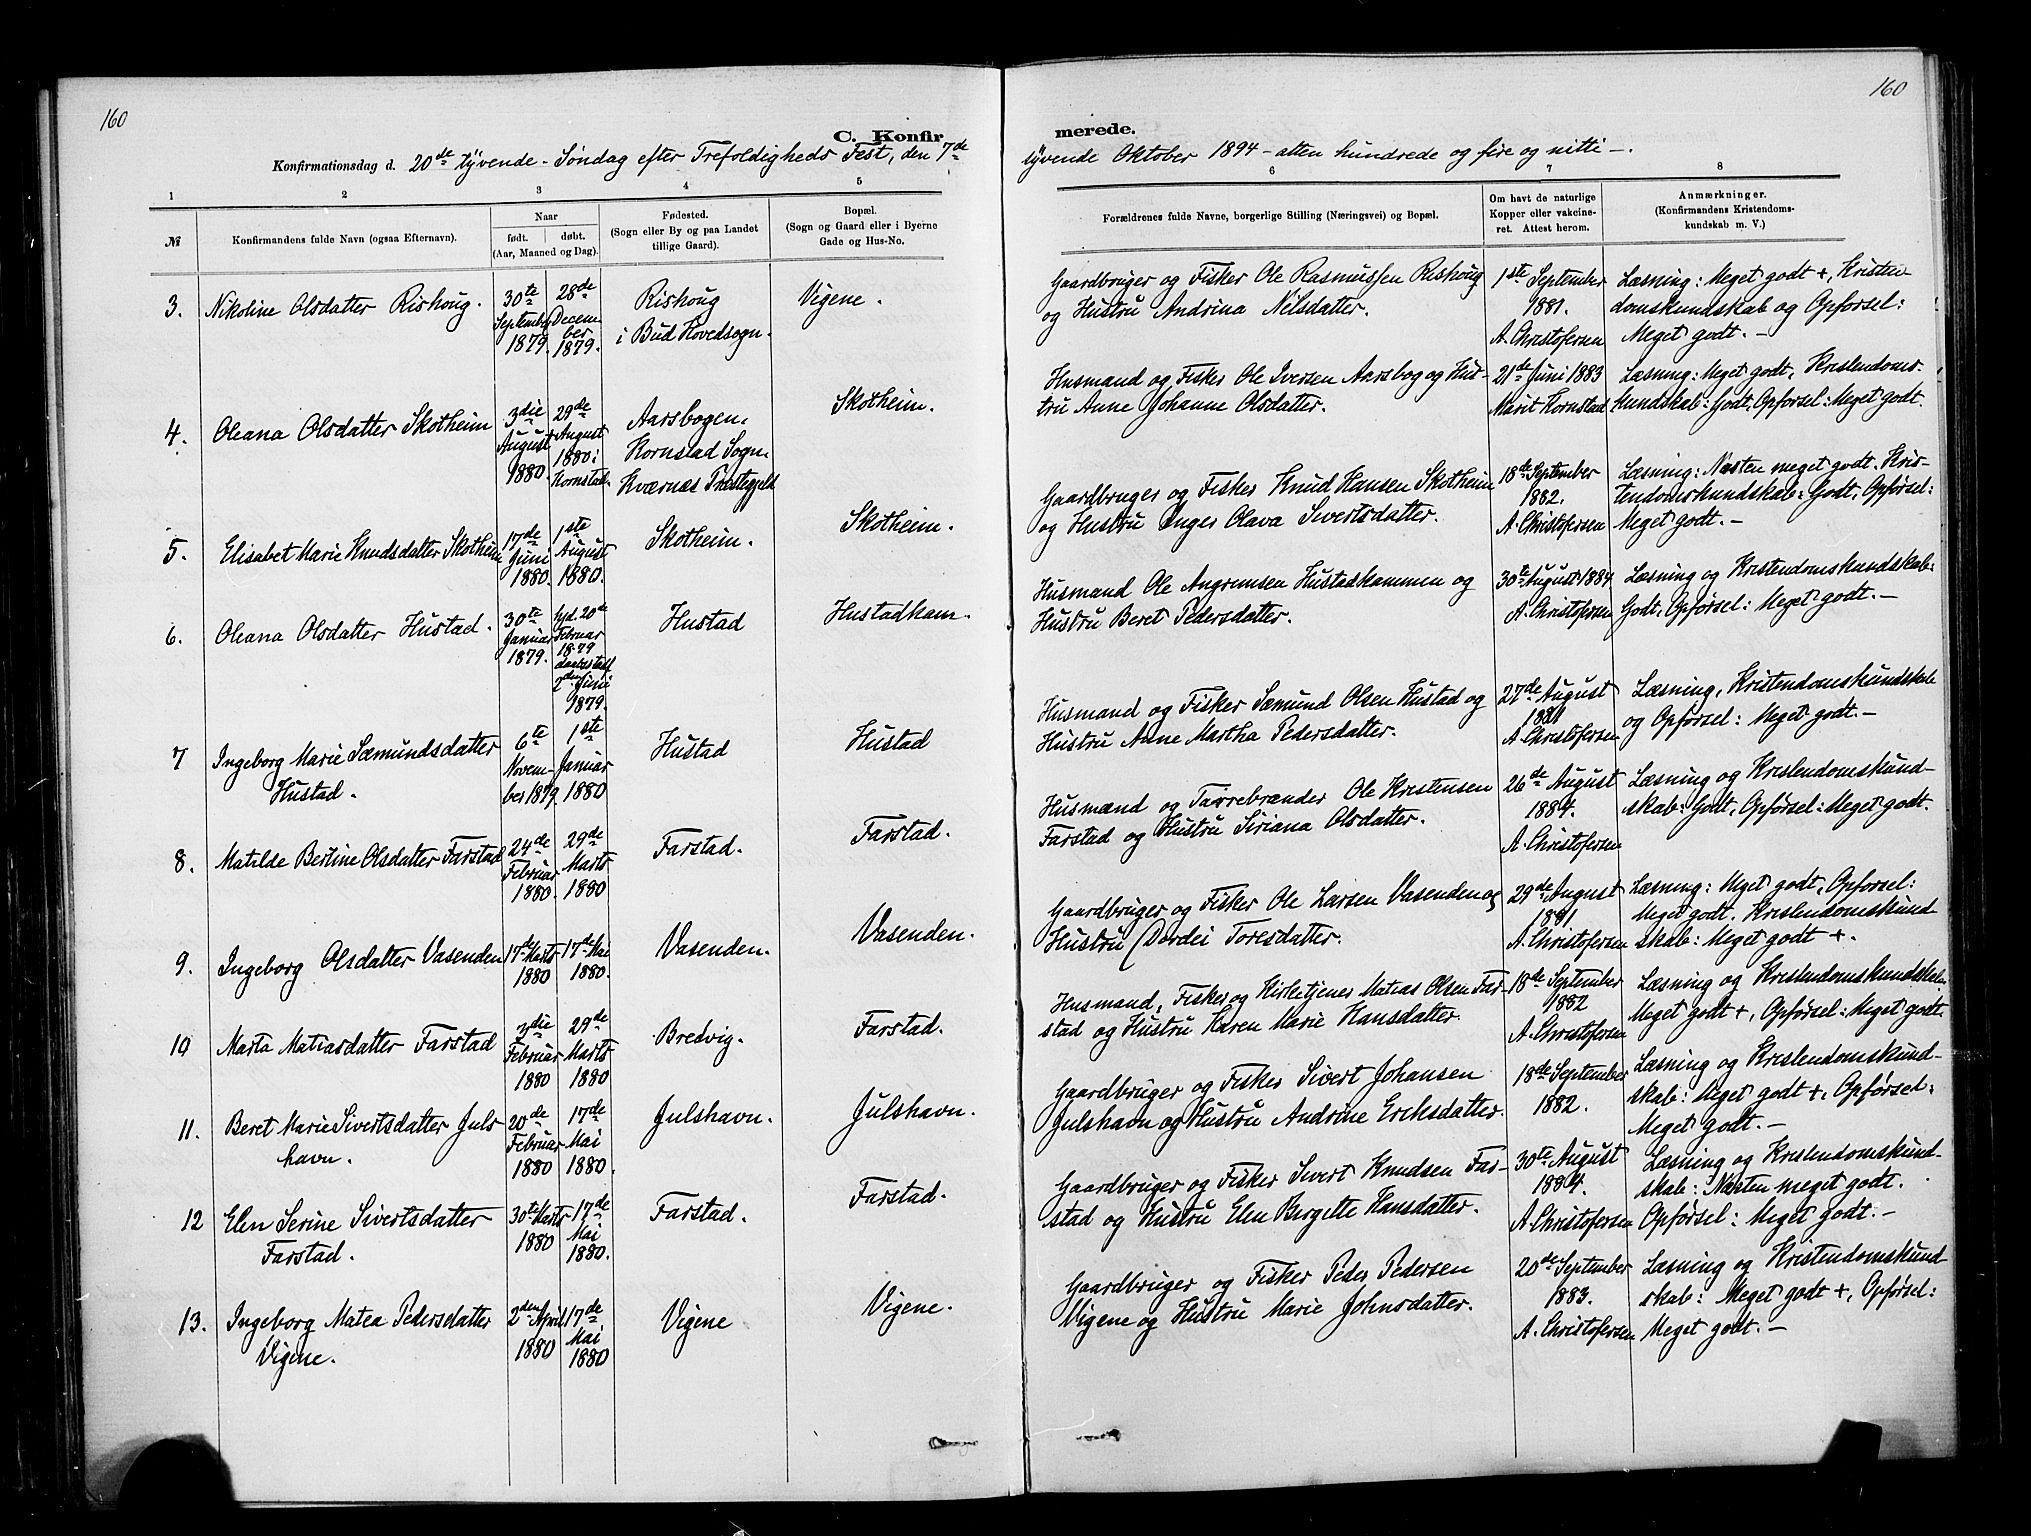 160
160
C. Konfir
merede.
Konfirmationsdag d. 20de tyvende - Søndag efter Trefoldigheds Fest, den 7de
syvende Oktober 1894 - atten hundrede og fire og nitti -.
1 2 3 4 5
6 7 8
№
Konfirmandens fulde Navn (ogsaa Efternavn).
Naar
født. døbt.
(Aar, Maaned og Dag).
Fødested.
(Sogn eller By og paa Landet
tillige Gaard).
Bopæl.
(Sogn og Gaard eller i Byerne
Gade og Hus-No.
Forældrenes fulde Navne, borgerlige Stilling (Næringsvei) og Bopæl.
Om havt de naturlige
Kopper eller vakcine-
ret. Attest herom.
Anmærkninger.
(Konfirmandens Kristendoms-
kundskab m. V.)
3. Nikoline Olsdatter Rishoug.
30te
September
1879.
28de
Decem-
ber
1879.
Rishoug
i Bud Hovedsogn.
Vigene.
Gaardbruger og Fisker Ole Rasmussen Rishoug
og Hustru Andrina Nilsdatter.
1ste September
1881.
A. Christofersen
Læsning: Meget godt +, Kristen
domskundskab og Opførsel:
Meget godt. -
4. Oleana Olsdatter Skotheim
3die
August
1880.
29de
August
1880 i
Kornstad.
Aarsbogen.
Kornstad Sogn.
Kværnæs Præstegjeld
Skotheim.
Husmand og Fisker Ole Iversen Aarsbog og Hus-
tru Anne Johanne Olsdatter.
21de Juni 1883
Marit Kornstad
Læsning: Meget godt, Kristendoms-
kundskab: Godt, Opførsel: Meget godt.
5. Elisabet Marie Knudsdatter Skotheim
17de
Juni
1880.
1ste
August
1880.
Skotheim.
Skotheim.
Gaardbruger og Fisker Knud Hansen Skotheim
og Hustru Inger Olava Sivertsdatter.
18de September
1882.
A. Christofersen
Læsning: Næsten meget godt. Kris-
tendomskundskab: Godt, Opførsel:
Meget godt. -
6. Oleana Olsdatter Hustad.
30te
Januar
1879.
hjd. 20de
Februar
1879
daabsstadf
2den Juni
1879.
Hustad
Hustadkam.
Husmand Ole Angremsen Hustadkammen og
Hustru Beret Pedersdatter.
30te August 1884
A. Christofersen
Læsning og Kristendomskundskab:
Godt, Opførsel: Meget godt. -
7 Ingeborg Marie Sæmundsdatter
Hustad.
6te
Novem-
ber 1879.
1ste
Januar
1880
Hustad
Hustad
Husmand og Fisker Sæmund Olsen Hustad og
Hustru Anne Martha Pedersdatter.
27de August
1881
A. Christofersen
Læsning, Kristendomskundskab
og Opførsel: Meget godt. -
8. Matilde Bertine Olsdatter Farstad
24de
Februar
1880.
29de
Marts
1880
Farstad.
Farstad.
Husmand og Tarrebrænder Ole Kristensen
Farstad og Hustru Siriana Olsdatter.
26de August
1884.
A. Christofersen
Læsning og Kristendomskund-
skab: Godt, Opførsel: Meget godt.
9. Ingeborg Olsdatter Vasenden
17de Marts
1880
17de Mai
1880.
Vasenden.
Vasenden.
Gaardbruger og Fisker Ole Larsen Vasenden og
Hustru Dordei Toresdatter.
29de August
1881
A. Christofersen
Læsning: Meget godt, Opførsel:
Meget godt. Kristendomskund
skab: Meget godt +.
10 Marta Matiasdatter Farstad
3die
Februar
1880
29de
Marts
1880
Bredvig.
Farstad.
Husmand, Fisker og Kirketjener Matias Olsen Far-
stad og Hustru Karen Marie Hansdatter.
18de September
1882
A. Christofersen
Læsning og Kristendomskundskab:
Meget godt +, Opførsel: Meget godt.
11. Beret Marie Sivertsdatter Juls
havn.
20de
Februar
1880
17de
Mai
1880.
Julshavn.
Julshavn.
Gaardbruger og Fisker Sivert Johansen
Julshavn og Hustru Andrine Eriksdatter.
18de September
1882.
Læsning og Kristendomskund-
skab: Meget godt +, Opførsel:
Meget godt. -
12 Elen Serine Sivertsdatter
Farstad.
30te Marts
1880
17de
Mai
1880.
Farstad.
Farstad.
Gaardbruger og Fisker Sivert Knudsen Far-
stad og Hustru Elen Bergitte Hansdatter.
30te August
1884.
A. Christofersen
Læsning og Kristendomskund-
skab: Næsten meget godt.
Opførsel: Meget godt. -
13. Ingeborg Matea Pedersdatter
Vigene.
2den April
1880
17de
Mai
1880
Vigene
Vigene.
Gaardbruger og Fisker Peder Pedersen
Vigene og Hustru Marie Johnsdatter.
20de September
1883.
A. Christofersen
Læsning og Kristendomskund
skab: Meget godt +, Opførsel:
Meget godt. -